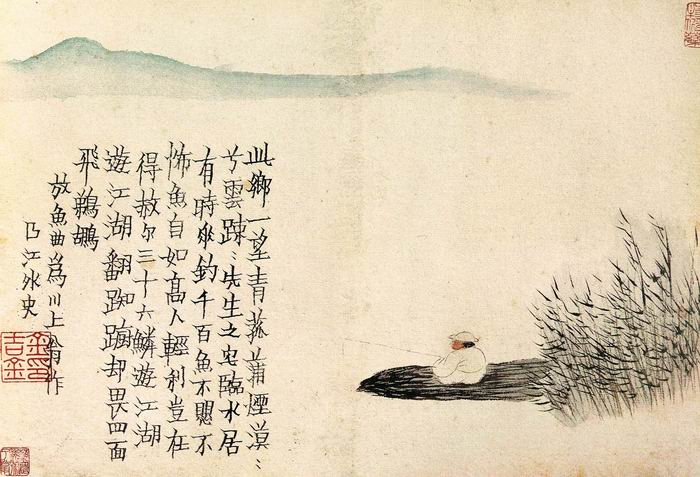 此鄉一望青菰蒲煙漠〻
兮雲踈〻先生之宅臨水居
有時垂釣千百魚不懸不
怖魚自如高人輕利豈在
得赦尔三十六鱗遊江湖
遊江湖翻踟躕却畏四面
飛鵜鶘
放魚曲為川上翁作
曲江外史
金吉金印